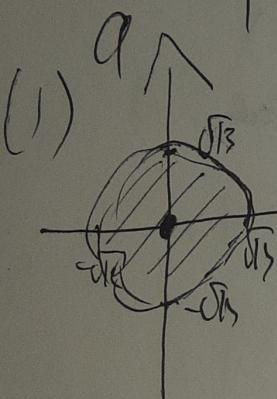 a
(1)
√13
√13
-√13
-√13